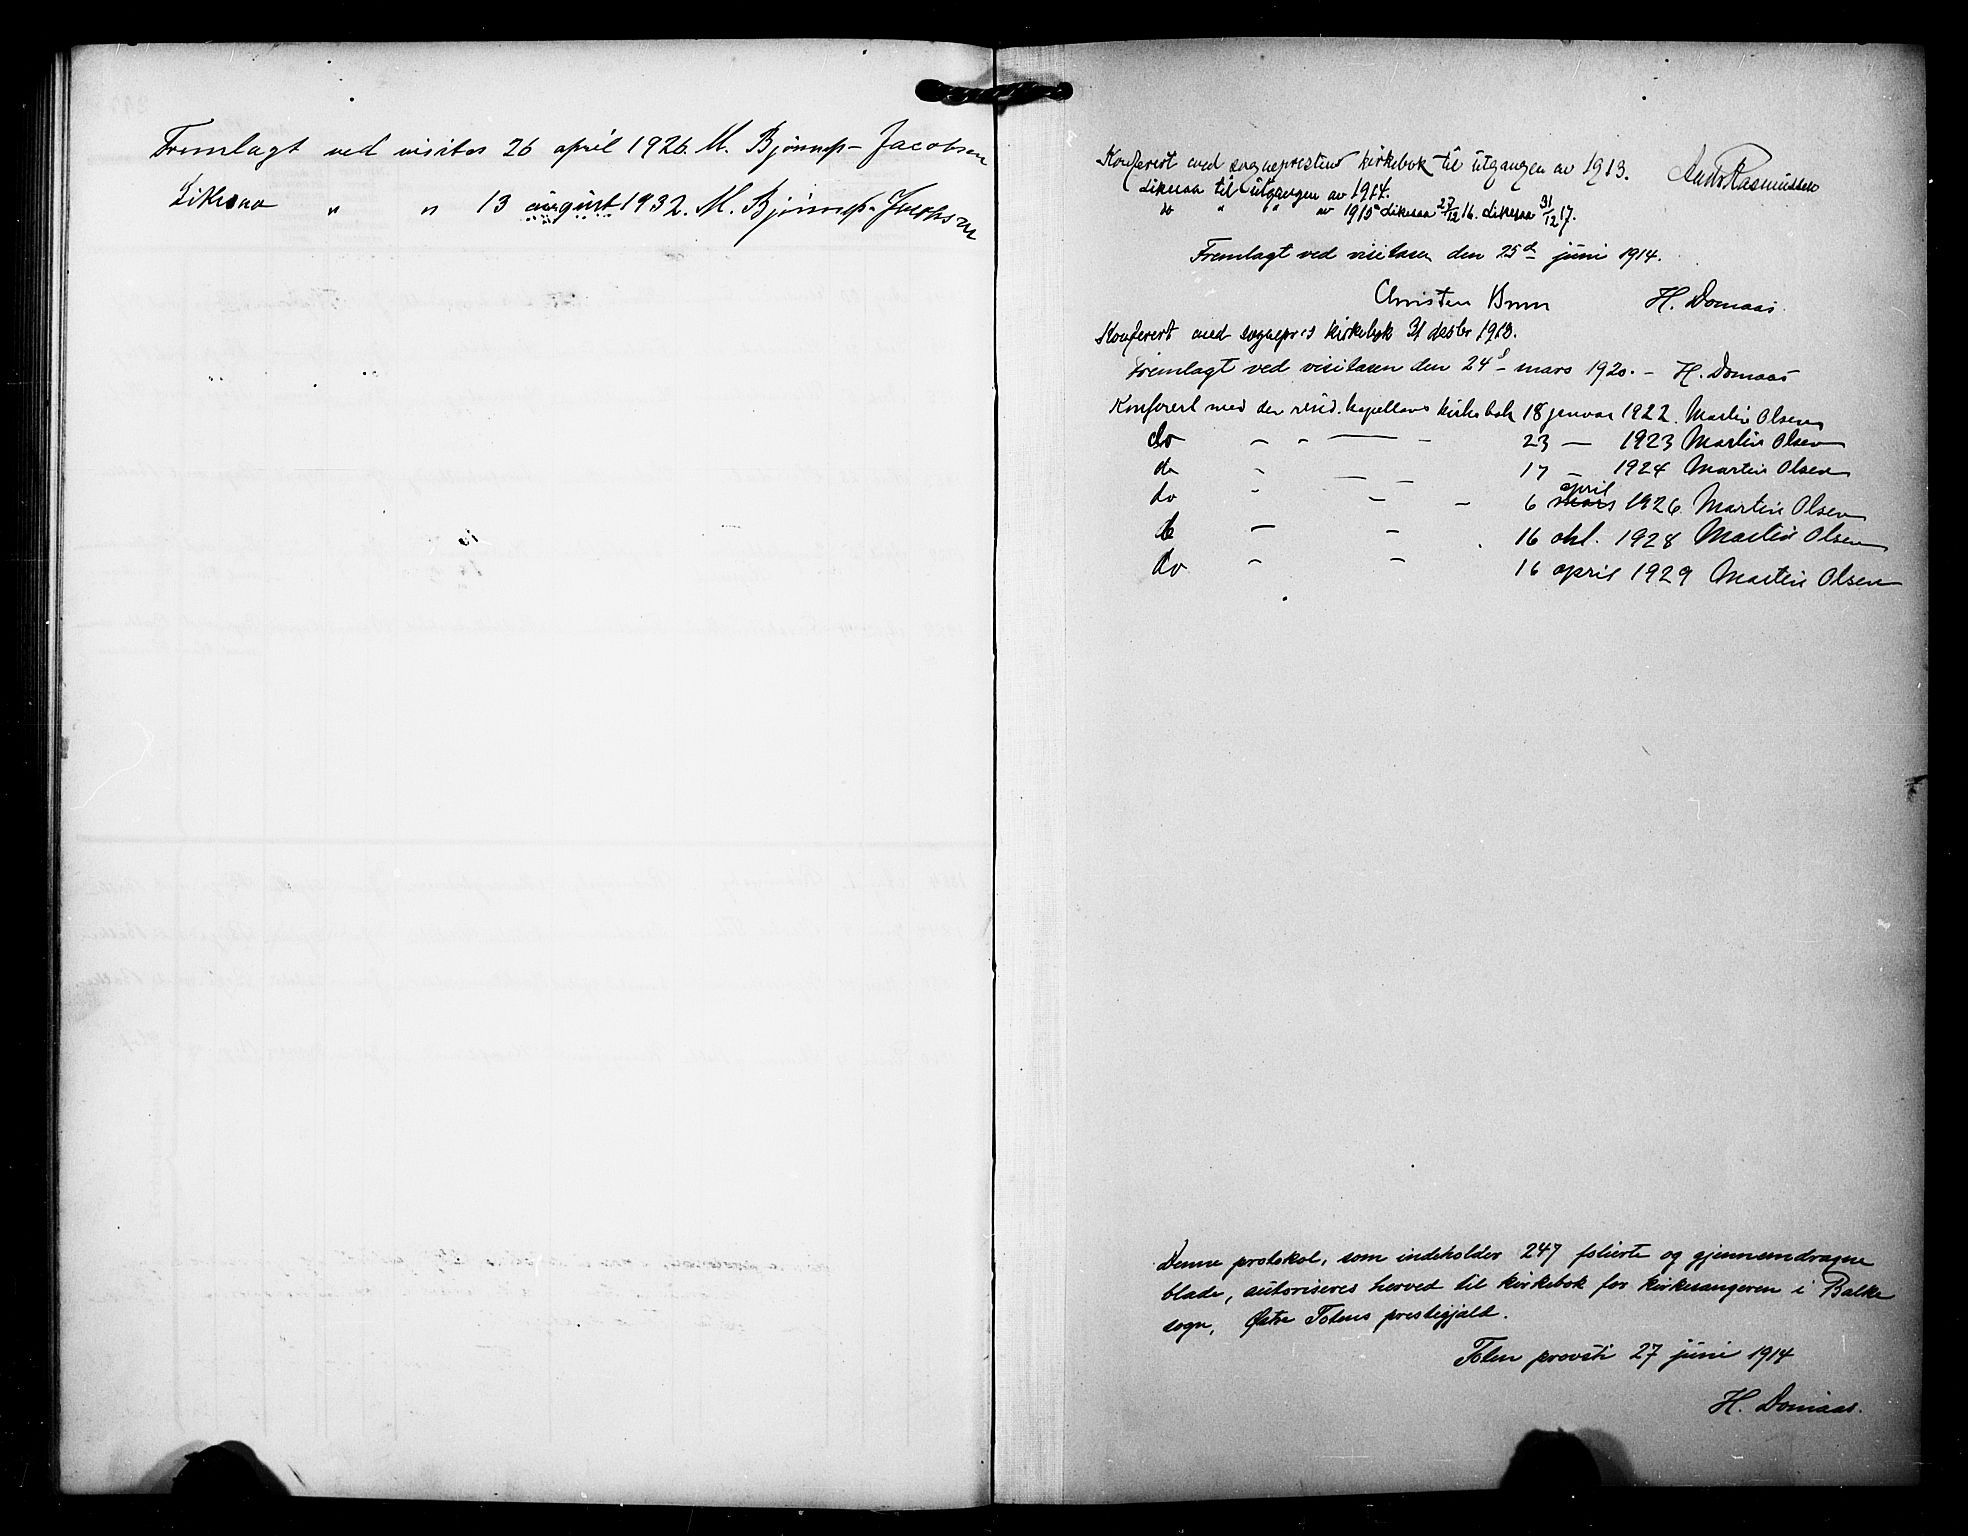 Fremlagt ved visitas 26 april 1926. M. Bjønnes-Jacobsen
Likesaa " " 13 august 1932. M. Bjønnes-Jacobsen
Konferert med sogneprestens kirkebok til utgangen av 1913. Anders Rasmussen
Likesaa til utgangen av 1914.
do " " av 1915 Likesaa 27/12 16. Likesaa 31/12 17.
Fremlagt ved visitasen den 25de juni 1914.
Christen Brun H. Domaas.
Konferert med sogneprs kirkebok 31 desbr 1918.
Fremlagt ved visitasen den 24de mars 1920. - H. Domaas
Konferert med den resid. kapellans kirkebok 18 januar 1922. Martin Olsen
do - - — - 23 — 1923 Martin Olsen
do - — - 17 — 1924 Martin Olsen
do - - - 6 mars april 1926. Martin Olsen
do - - 16 okt. 1928 Martin Olsen
do - - 16 april 1929 Martin Olsen
Denne protokol, som indeholder 247 folierte og gjennemdragne
blade, autoriseres herved til kirkebok for kirkesangeren i Balke
sogn, Østre Totens prestegjeld.
Toten provsti 27 juni 1914
H. Domaas.